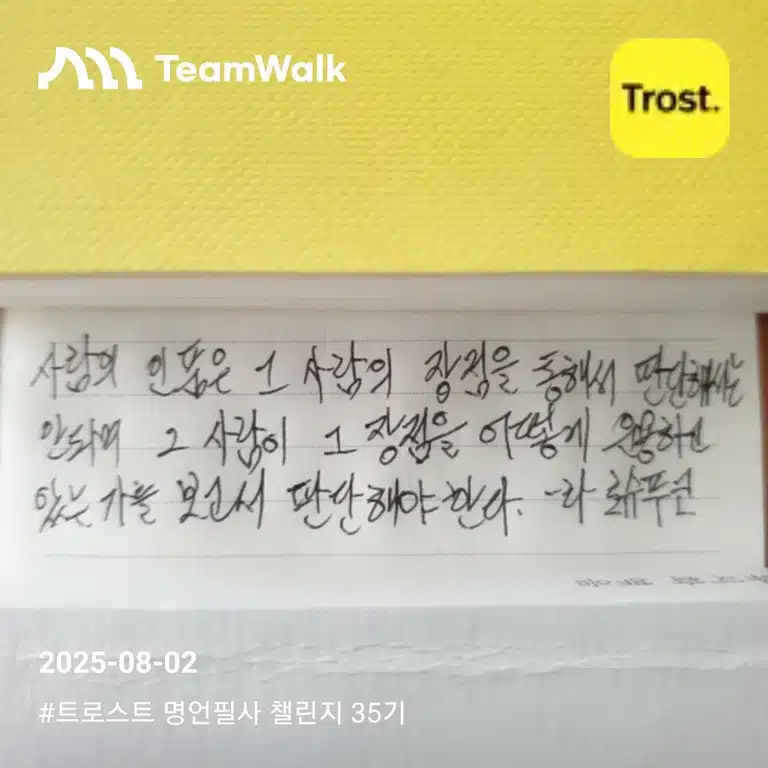 TeamWalk
Trost.
사람의 인품은 그 사람의 장점을 통해서 판단해서는
안되며 그 사람이 그 장점을 어떻게 운용하고
있는 가를 보고서 판단해야 한다. -라 로슈푸코
2025-08-02
#트로스트 명언필사 챌린지 35기